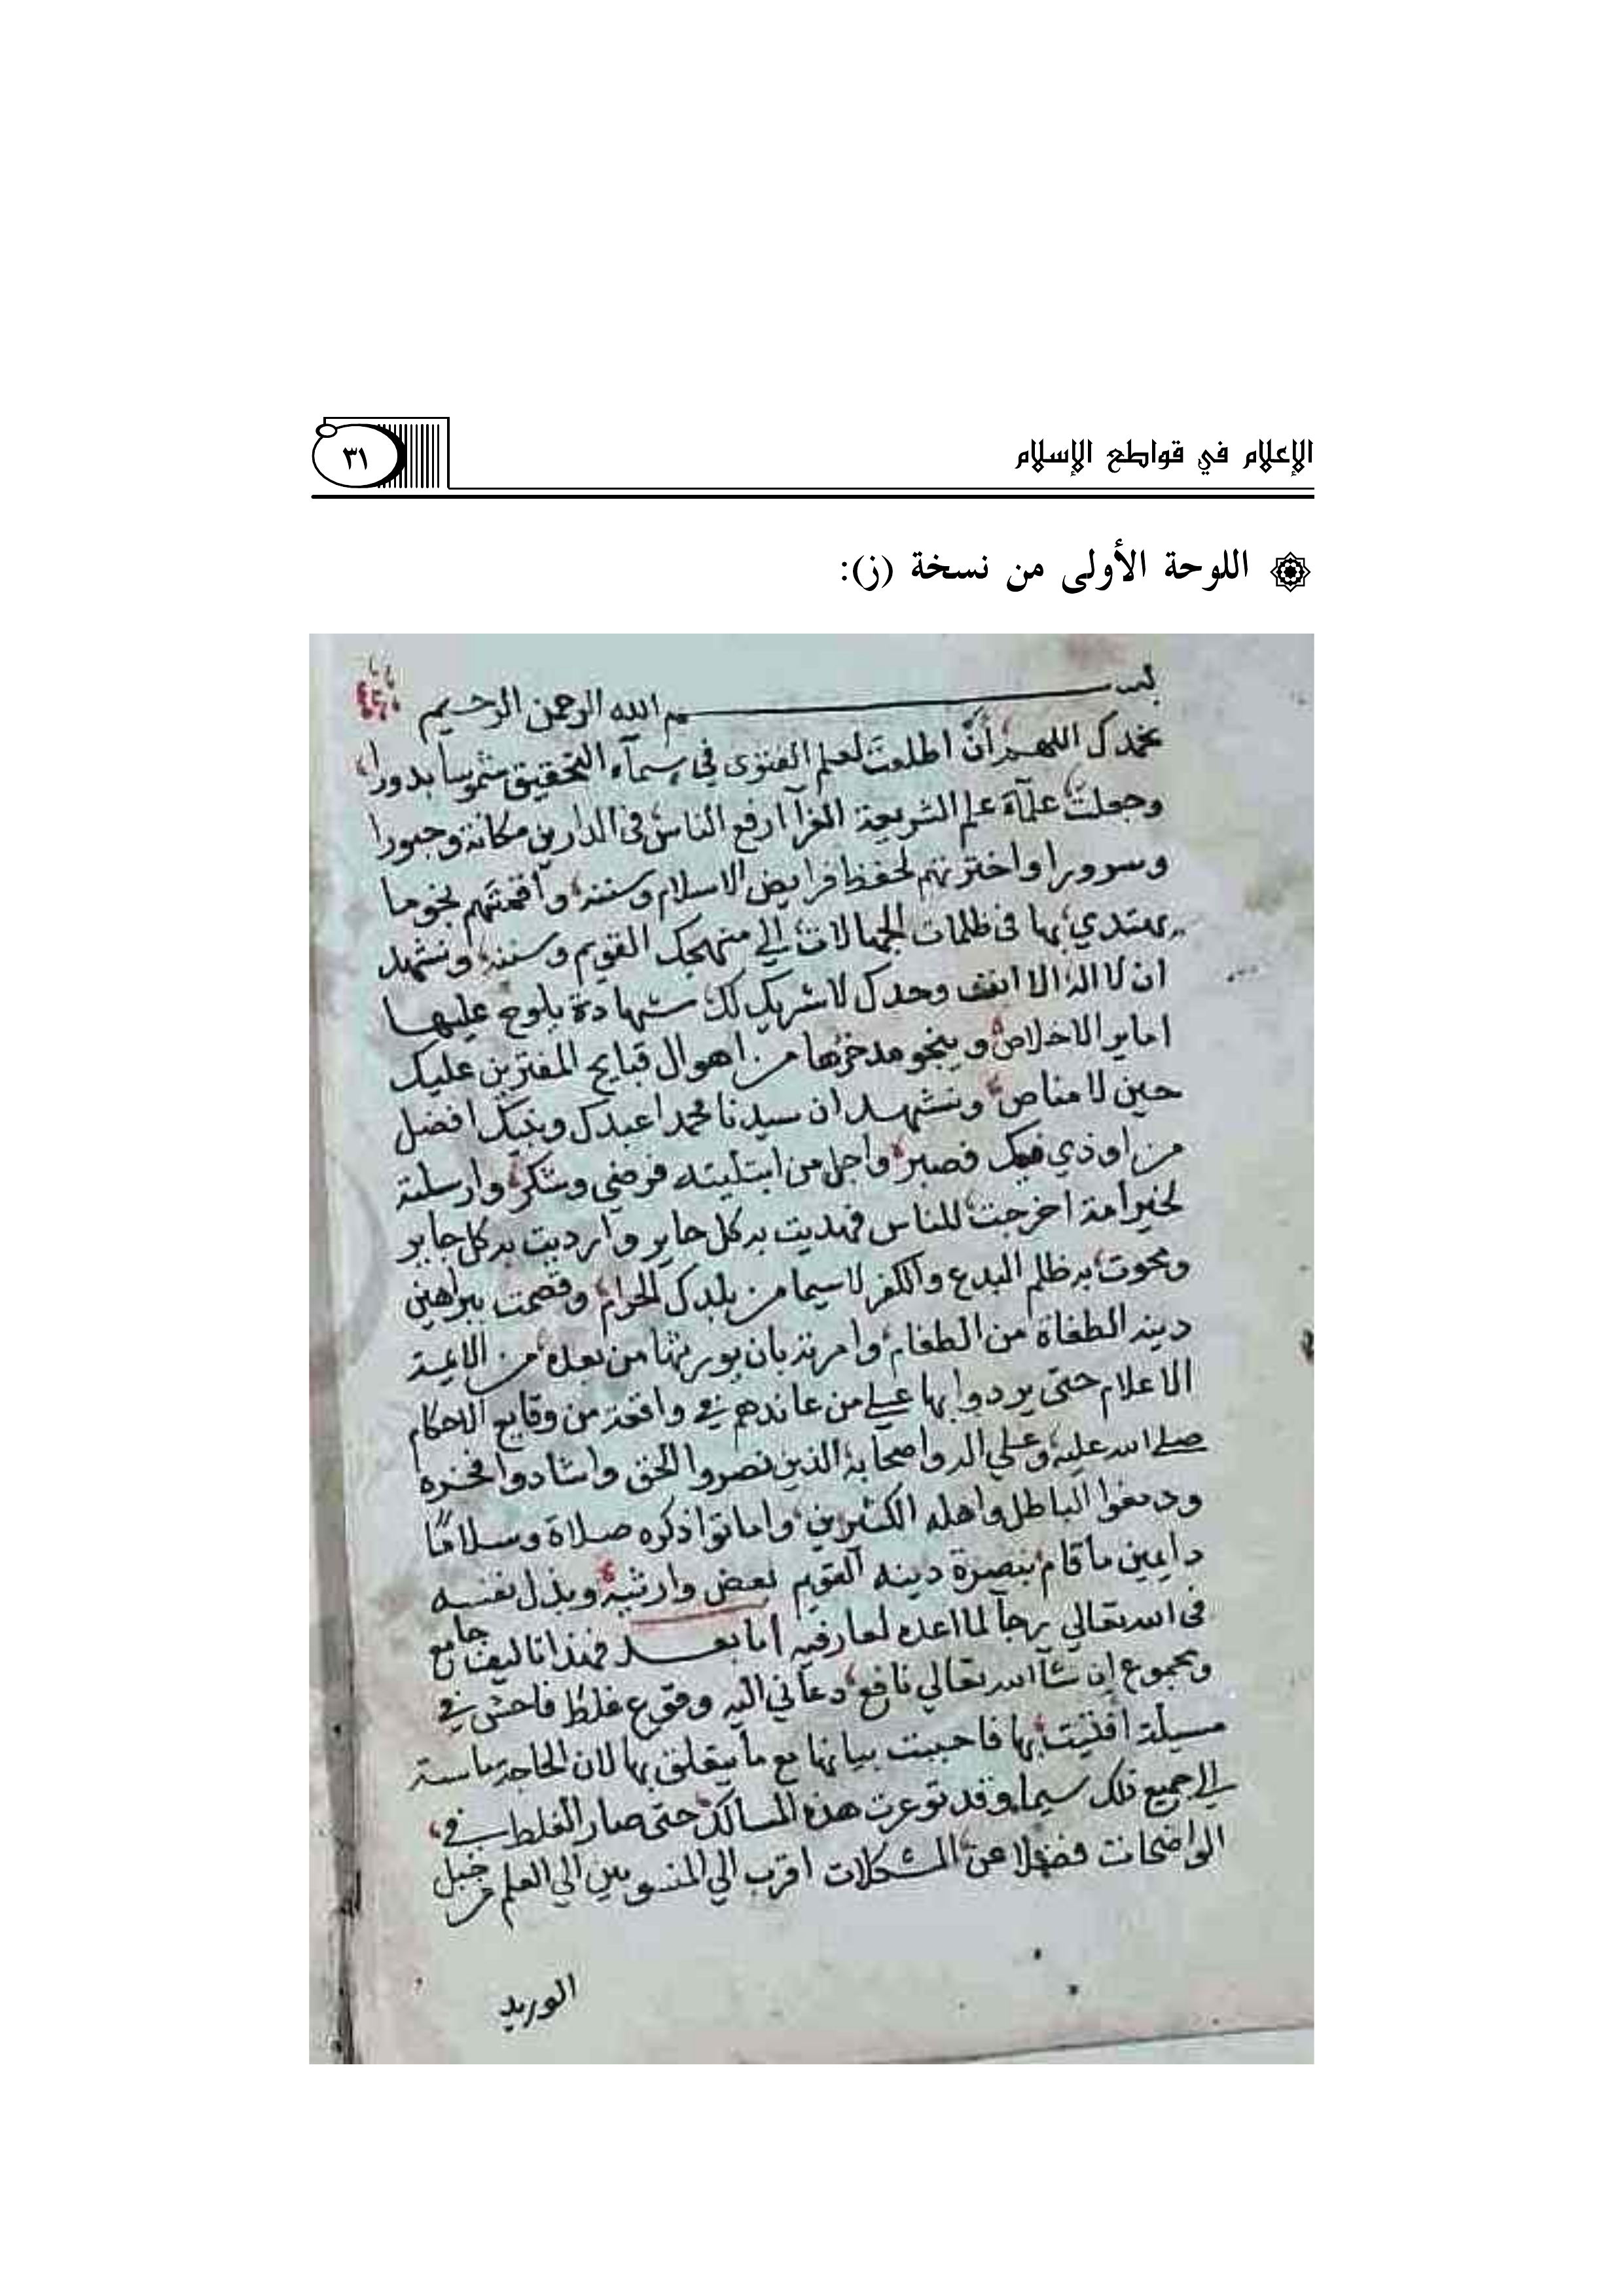 الإعلام في قواطع الإسلام
٣١
اللوحة الأولى من نسخة (ز):
بسم الله الرحمن الرحيم
نحمدك اللهم أن اطلعت لعلم الفتوى في سمآء التحقيق شموسا بدورا
وجعلت علمآء علم الشريعة الغرآ ارفع الناس في الدارين مكانة وحبورا
وسرورا واخترتهم لحفظ فرايض الاسلام وسننه واقمتهم نجوما
يهتدي بها في ظلمات الجهالات الي منهجك القويم وسننه ونشهد
ان لا اله الا انت وحدك لا شريك لك شهادة يلوح عليها
اماير الاخلاص وينجو مدخرها من اهوال قبايح المفترين عليك
حين لا مناص ونشهد ان سيدنا محمدا عبدك ونبيك افضل
من اوذي فيك فصبر واجل من ابتليته فرضي وشكر وارسلته
لخير امة اخرجت للناس فهديت به كل حاير وارديت به كل جاير
ومحوت به ظلم البدع والكفر لاسيما من بلدك الحرام وقصمت ببراهين
دينه الطغاة من الطغام وامرته بان يورثها من بعده من الايمة
الاعلام حتى يردوا بها علي من عاندهم في واقعة من وقايع الاحكام
صلي الله عليه وعلي اله واصحابه الذين نصروا الحق واشادوا فخره
ودمغوا الباطل واهله الكثيرين واماتوا ذكره صلاة وسلاما
دايمين ما قام بنصرة دينه القويم بعض وارثيه وبذل نفسه
في الله تعالي رجآ لما اعده لعارفيه اما بعد فهذا تاليف جامع
ومجموع ان شآ الله تعالي نافع دعاني اليه وقوع غلط فاحش في
مسيلة افتيت بها فاحببت بيانها مع ما يتعلق بها لان الحاجة ماسة
الي جميع ذلك سيما وقد توعرت هذه المسالك حتى صار الغلط في
الواضحات فضلا عن المشكلات اقرب الي المنسوبين الي العلم من حبل
الوريد